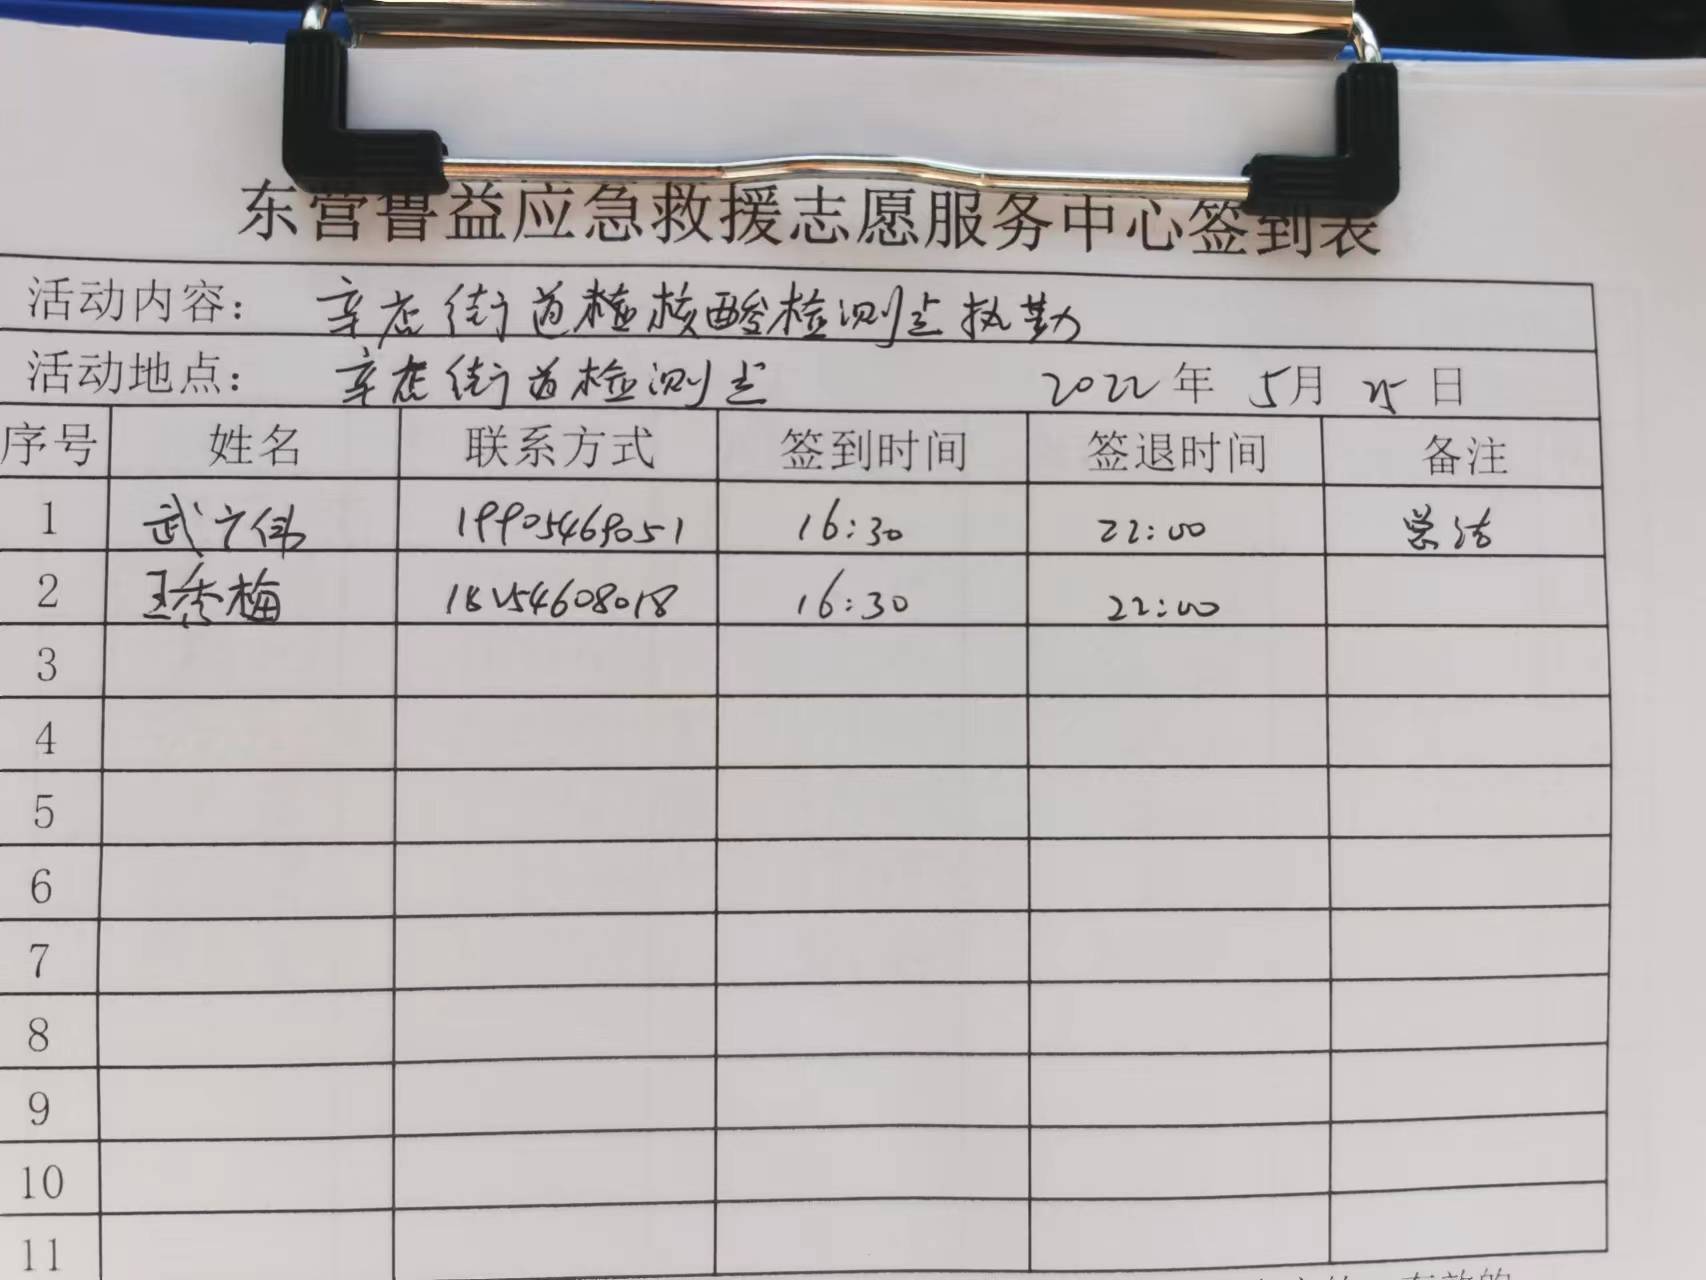 东营鲁益应急救援志愿服务中心签到表
活动内容： 辛店街道检核酸检测点执勤
活动地点： 辛店街道检测点 2022年 5月 25日
序号 姓名 联系方式 签到时间 签退时间 备注
1 武广伟 19905469051 16:30 22:00 总结
2 王秀梅 18254608018 16:30 22:00
3
4
5
6
7
8
9
10
11